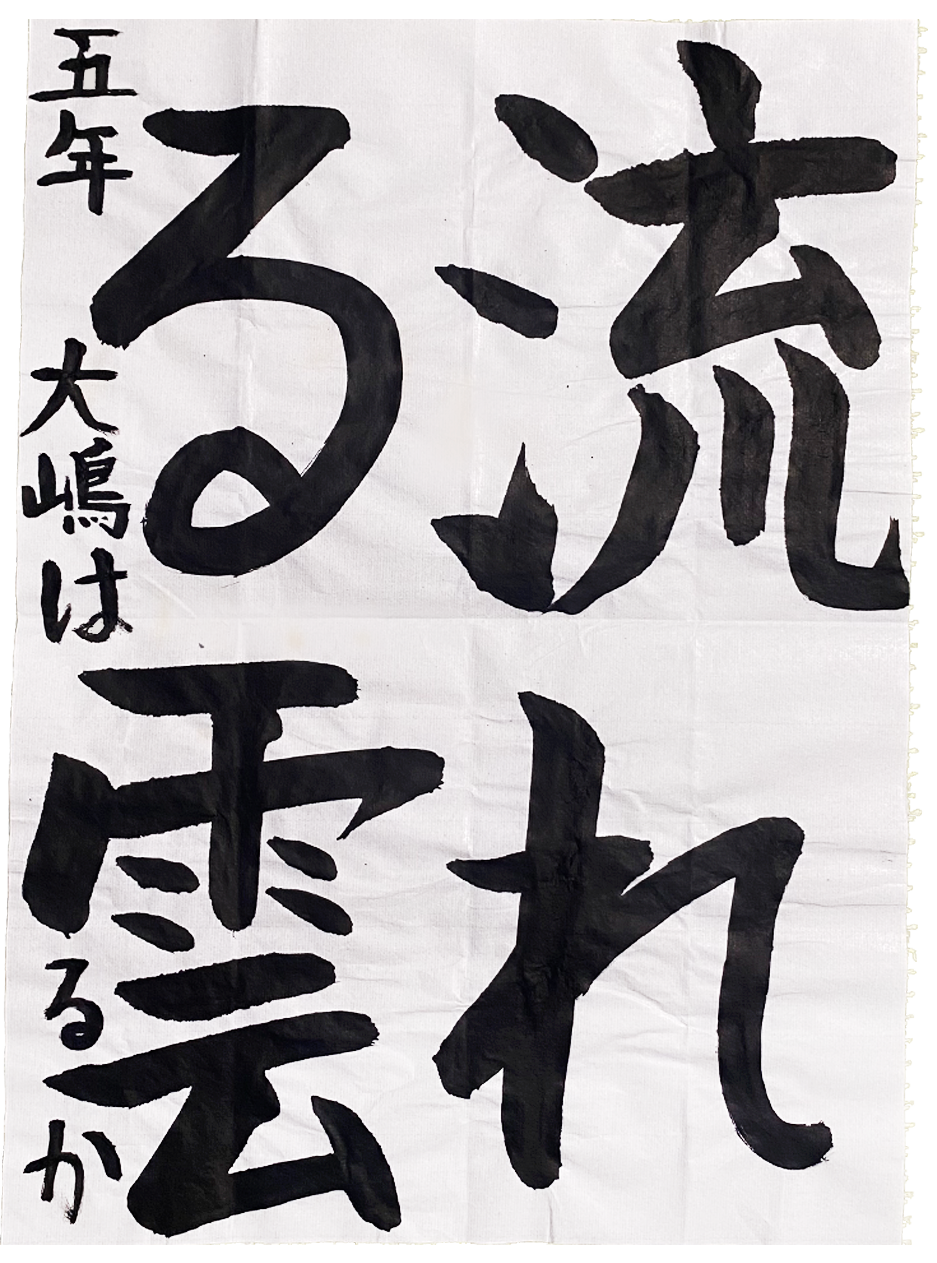 流れ
る雲
五年 大嶋はるか